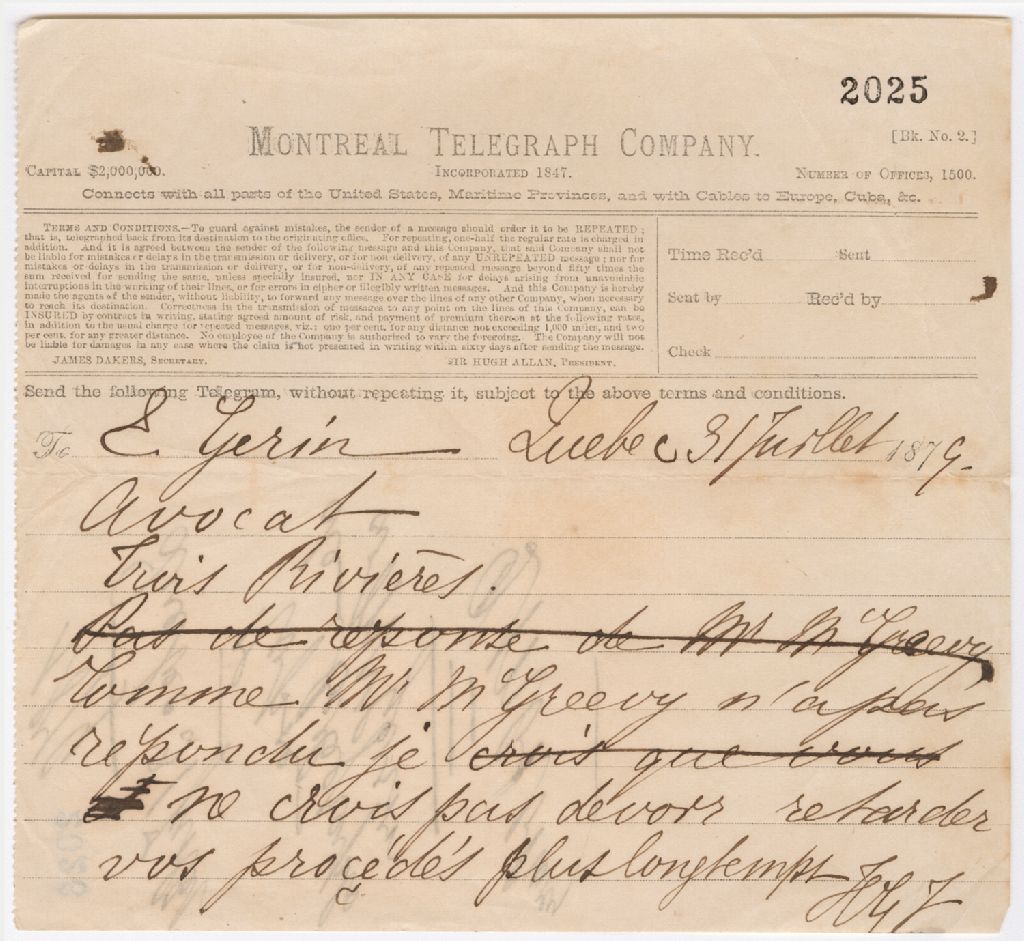 2025
[Bk. No. 2.]
MONTREAL TELEGRAPH COMPANY.
CAPITAL $2,000,000. INCORPORATED 1847. NUMBER OF OFFICES, 1500.
Connects with all parts of the United States, Maritime Provinces, and with Cables to Europe, Cuba, &c.
TERMS AND CONDITIONS.—To guard against mistakes, the sender of a message should order it to be REPEATED;
that is, telegraphed back from its destination to the originating office. For repeating, one-half the regular rate is charged in
addition. And it is agreed between the sender of the following message and this Company, that said Company shall not
be liable for mistakes or delays in the transmission or delivery, or for non-delivery, of any UNREPEATED message; nor for
mistakes or delays in the transmission or delivery, or for non-delivery, of any repeated message beyond fifty times the
sum received for sending the same, unless specially insured, nor IN ANY CASE for delays arising from unavoidable
interruptions in the working of their lines, or for errors in cipher or illegibly written messages. And this Company is hereby
made the agents of the sender, without liability, to forward any message over the lines of any other Company, when necessary
to reach its destination. Correctness in the transmission of messages to any point on the lines of this Company, can be
INSURED by contract in writing, stating agreed amount of risk, and payment of premium thereon at the following rates,
in addition to the usual charge for repeated messages, viz.: one per cent. for any distance not exceeding 1,000 miles, and two
per cent. for any greater distance. No employee of the Company is authorized to vary the foregoing. The Company will not
be liable for damages in any case where the claim is not presented in writing within sixty days after sending the message.
JAMES DAKERS, SECRETARY. SIR HUGH ALLAN, PRESIDENT.
Time Rec'd Sent
Sent by Rec'd by
Check
Send the following Telegram, without repeating it, subject to the above terms and conditions.
To E Gerin Quebec 31 Juillet 1879.
Avocat
Trois Rivières.
Pas de reponse de Mr McGreevy
Comme Mr McGreevy n'a pas
répondu je crois que vous
ne crois pas devoir retarder
vos procédés plus longtempt
HGJ